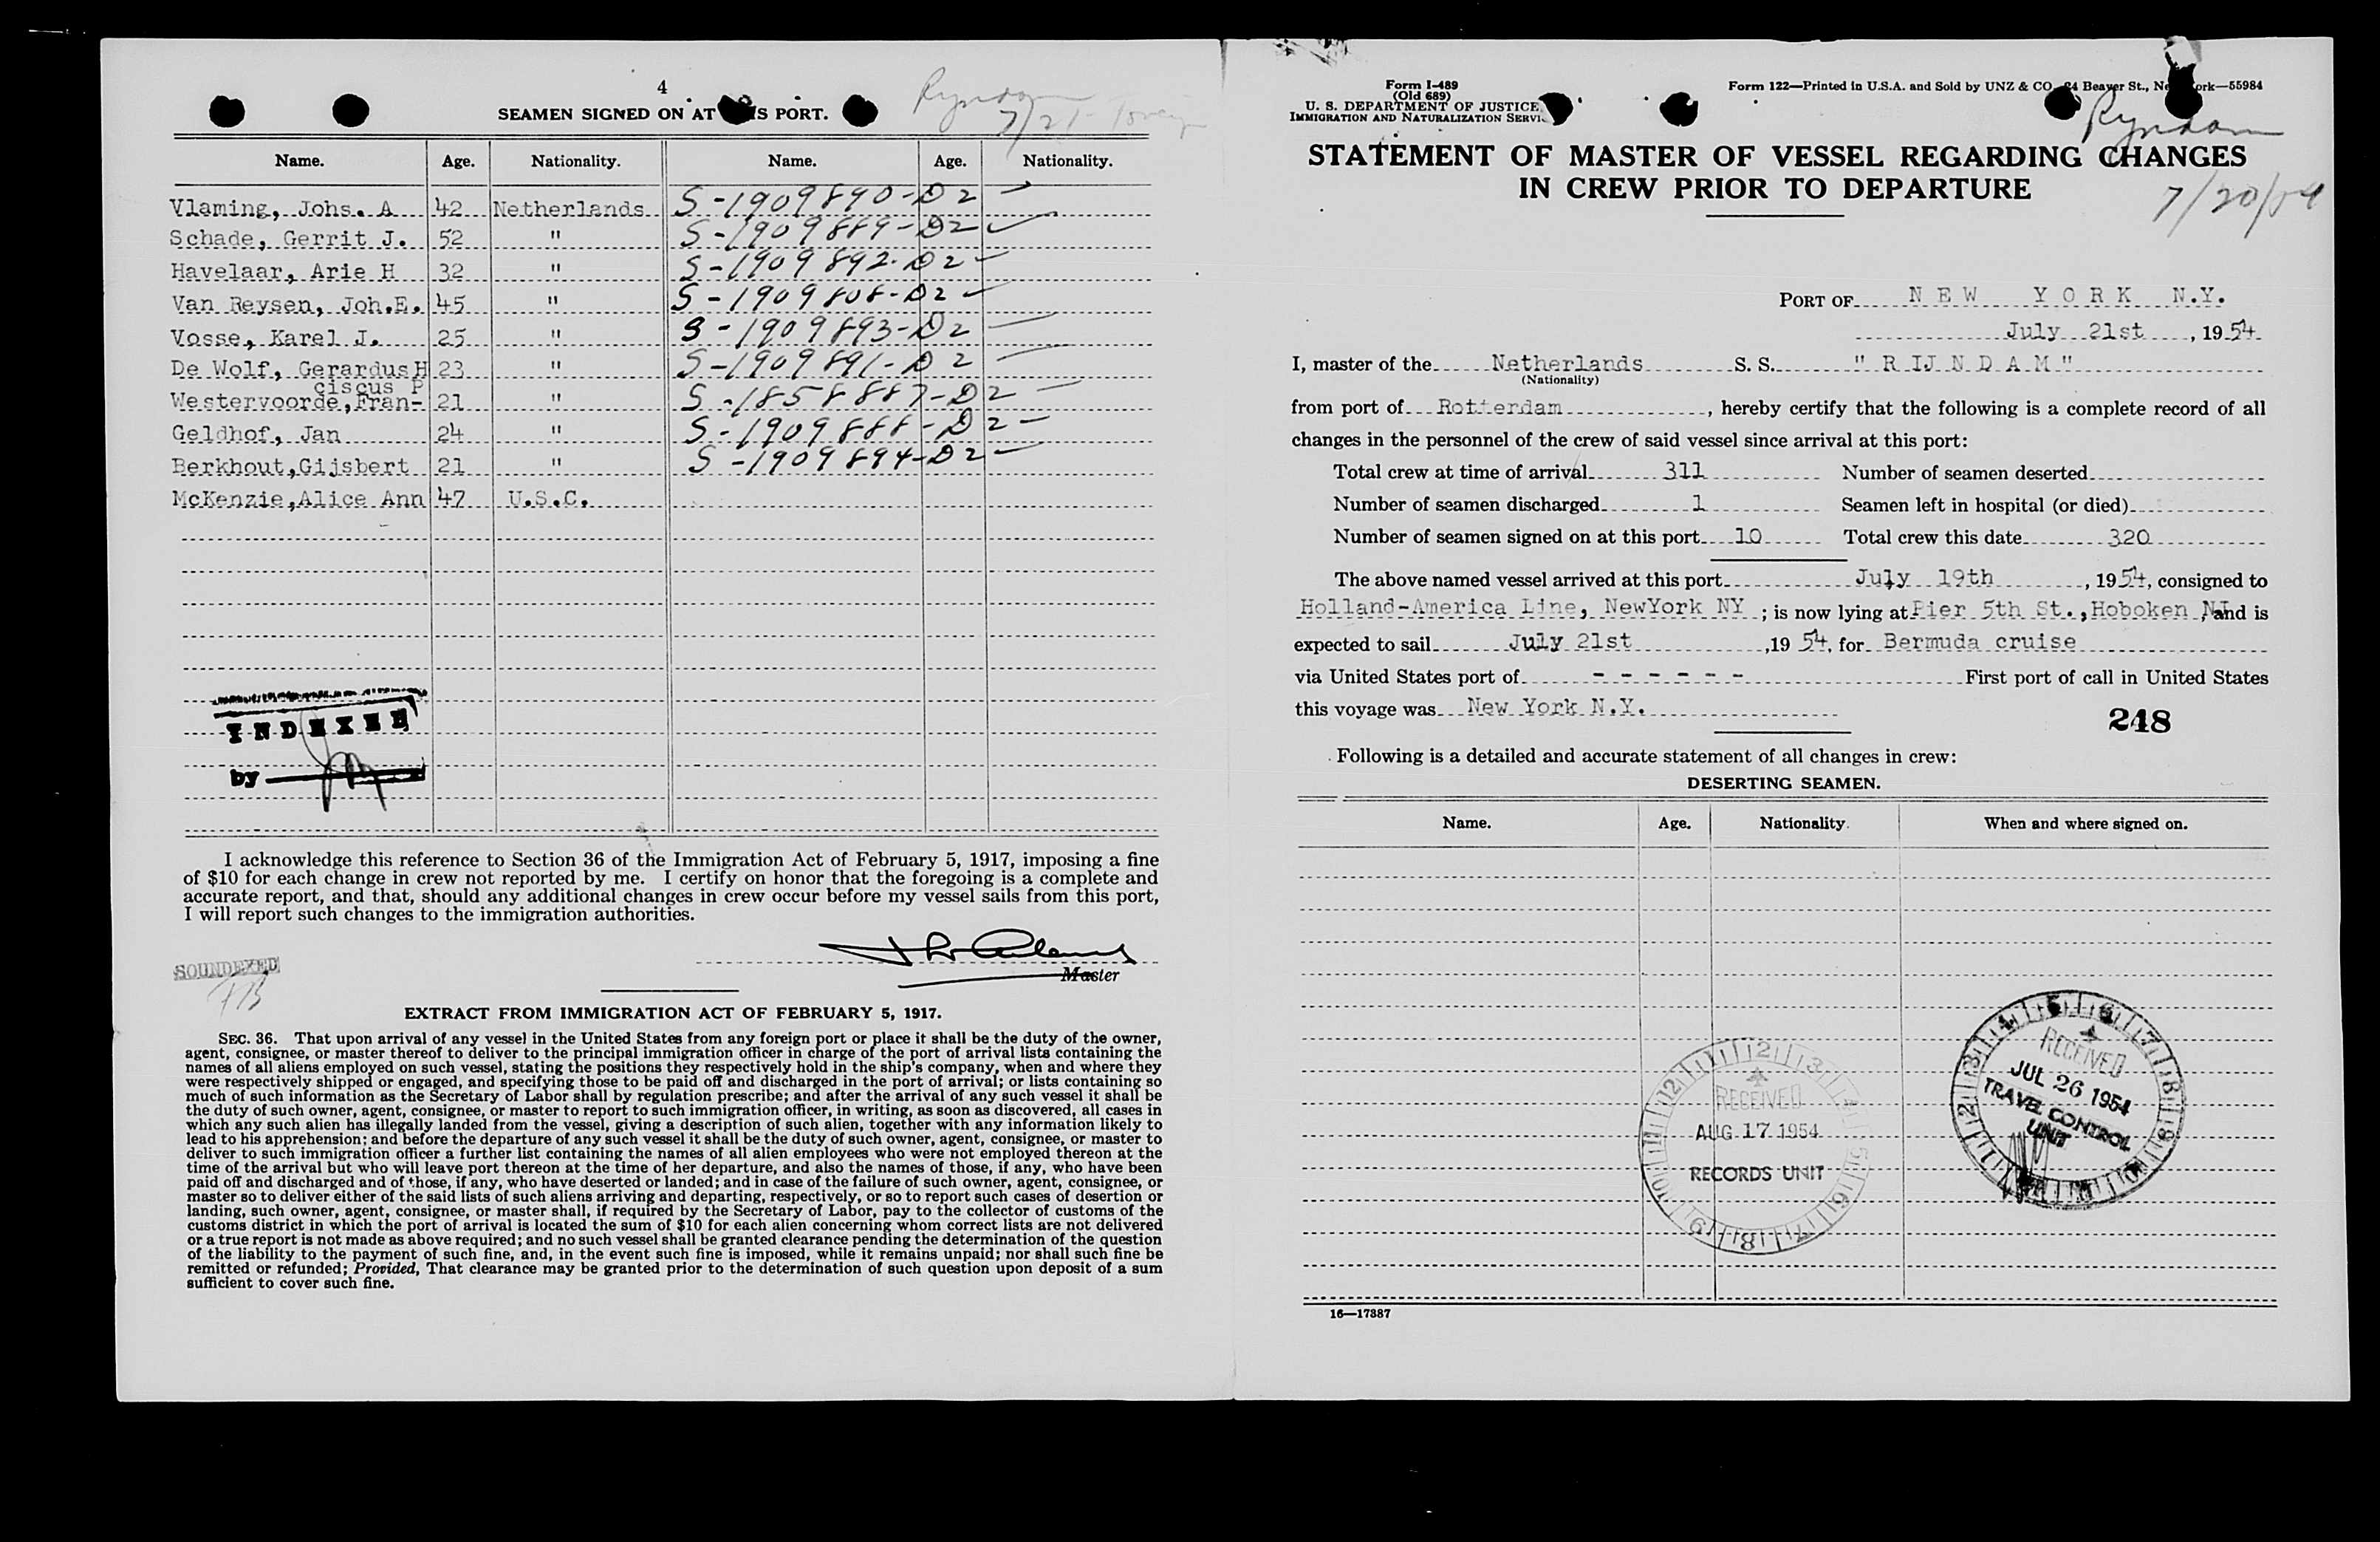 4
SEAMEN SIGNED ON AT IS PORT.
Ryndam
7/21
Name. Age. Nationality. Name. Age. Nationality.
Vlaming, Johs. A 42 Netherlands S-1909890-D2
Schade, Gerrit J. 52 " S-1909889-D2
Havelaar, Arie H 32 " S-1909892-D2
Van Reysen, Joh.E. 45 " S-1909808-D2
Vosse, Karel J. 25 " S-1909893-D2
De Wolf, Gerardus H 23 " S-1909891-D2
ciscus P
Westervoorde,Fran- 21 " S-1858887-D2
Geldhof, Jan 24 " S-1909888-D2
Berkhout,Gijsbert 21 " S-1909894-D2
McKenzie,Alice Ann 47 U.S.C.
INDEXED
by
I acknowledge this reference to Section 36 of the Immigration Act of February 5, 1917, imposing a fine
of $10 for each change in crew not reported by me. I certify on honor that the foregoing is a complete and
accurate report, and that, should any additional changes in crew occur before my vessel sails from this port,
I will report such changes to the immigration authorities.
Master
SOUNDEXED
EXTRACT FROM IMMIGRATION ACT OF FEBRUARY 5, 1917.
SEC. 36. That upon arrival of any vessel in the United States from any foreign port or place it shall be the duty of the owner,
agent, consignee, or master thereof to deliver to the principal immigration officer in charge of the port of arrival lists containing the
names of all aliens employed on such vessel, stating the positions they respectively hold in the ship's company, when and where they
were respectively shipped or engaged, and specifying those to be paid off and discharged in the port of arrival; or lists containing so
much of such information as the Secretary of Labor shall by regulation prescribe; and after the arrival of any such vessel it shall be
the duty of such owner, agent, consignee, or master to report to such immigration officer, in writing, as soon as discovered, all cases in
which any such alien has illegally landed from the vessel, giving a description of such alien, together with any information likely to
lead to his apprehension; and before the departure of any such vessel it shall be the duty of such owner, agent, consignee, or master to
deliver to such immigration officer a further list containing the names of all alien employees who were not employed thereon at the
time of the arrival but who will leave port thereon at the time of her departure, and also the names of those, if any, who have been
paid off and discharged and of those, if any, who have deserted or landed; and in case of the failure of such owner, agent, consignee, or
master so to deliver either of the said lists of such aliens arriving and departing, respectively, or so to report such cases of desertion or
landing, such owner, agent, consignee, or master shall, if required by the Secretary of Labor, pay to the collector of customs of the
customs district in which the port of arrival is located the sum of $10 for each alien concerning whom correct lists are not delivered
or a true report is not made as above required; and no such vessel shall be granted clearance pending the determination of the question
of the liability to the payment of such fine, and, in the event such fine is imposed, while it remains unpaid; nor shall such fine be
remitted or refunded; Provided, That clearance may be granted prior to the determination of such question upon deposit of a sum
sufficient to cover such fine.
Form I-489
(Old 689)
U. S. DEPARTMENT OF JUSTICE
IMMIGRATION AND NATURALIZATION SERVI
Form 122—Printed in U.S.A. and Sold by UNZ & CO 24 Beaver St., Ne ork—55984
Ryndam
STATEMENT OF MASTER OF VESSEL REGARDING CHANGES
IN CREW PRIOR TO DEPARTURE
7/20/54
PORT OF NEW YORK N.Y.
July 21st , 1954
I, master of the Netherlands S. S. "RIJNDAM"
(Nationality)
from port of Rotterdam , hereby certify that the following is a complete record of all
changes in the personnel of the crew of said vessel since arrival at this port:
Total crew at time of arrival 311 Number of seamen deserted
Number of seamen discharged 1 Seamen left in hospital (or died)
Number of seamen signed on at this port 10 Total crew this date 320
The above named vessel arrived at this port July 19th , 1954, consigned to
Holland-America Line, NewYork NY ; is now lying at Pier 5th St.,Hoboken NJ, and is
expected to sail July 21st ,19 54, for Bermuda cruise
via United States port of - - - - - - First port of call in United States
this voyage was New York N.Y.
248
Following is a detailed and accurate statement of all changes in crew:
DESERTING SEAMEN.
Name. Age. Nationality. When and where signed on.
RECEIVED
JUL 26 1954
TRAVEL CONTROL
UNIT
RECEIVED
AUG 17 1954
RECORDS UNIT
16—17387